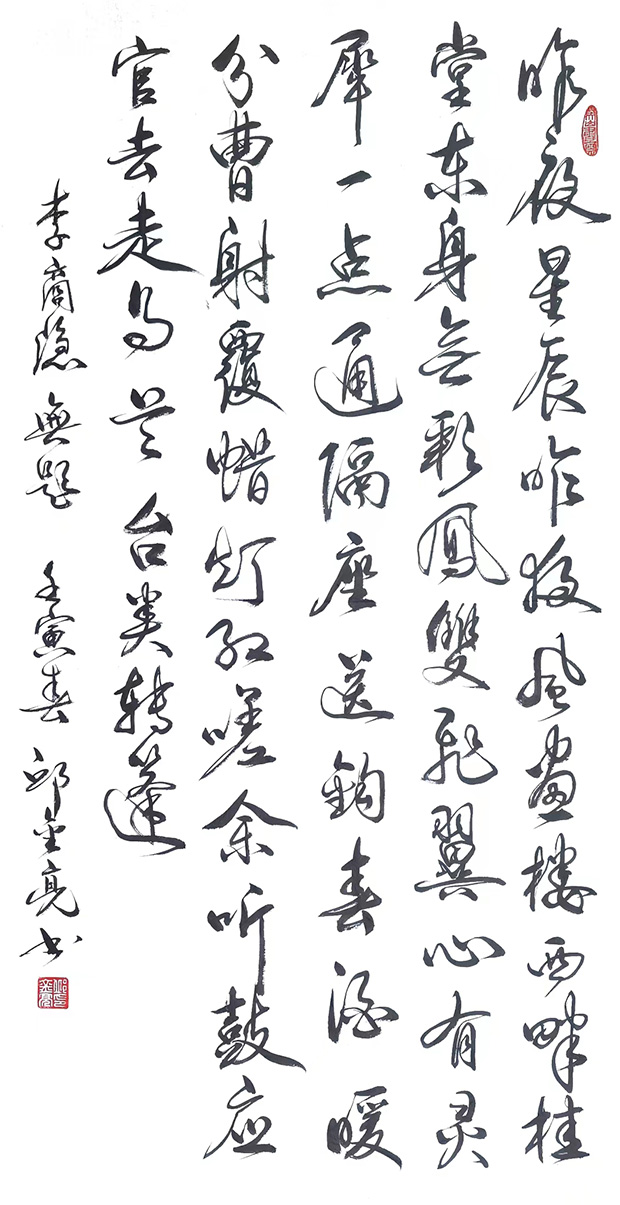 昨夜星辰昨夜风畫楼西畔桂
堂东身无彩鳳雙飛翼心有灵
犀一点通隔座送鈎春酒暖
分曹射覆蜡灯红嗟余听鼓应
官去走马兰台类转蓬
李商隐無题 壬寅春 邱金亮书